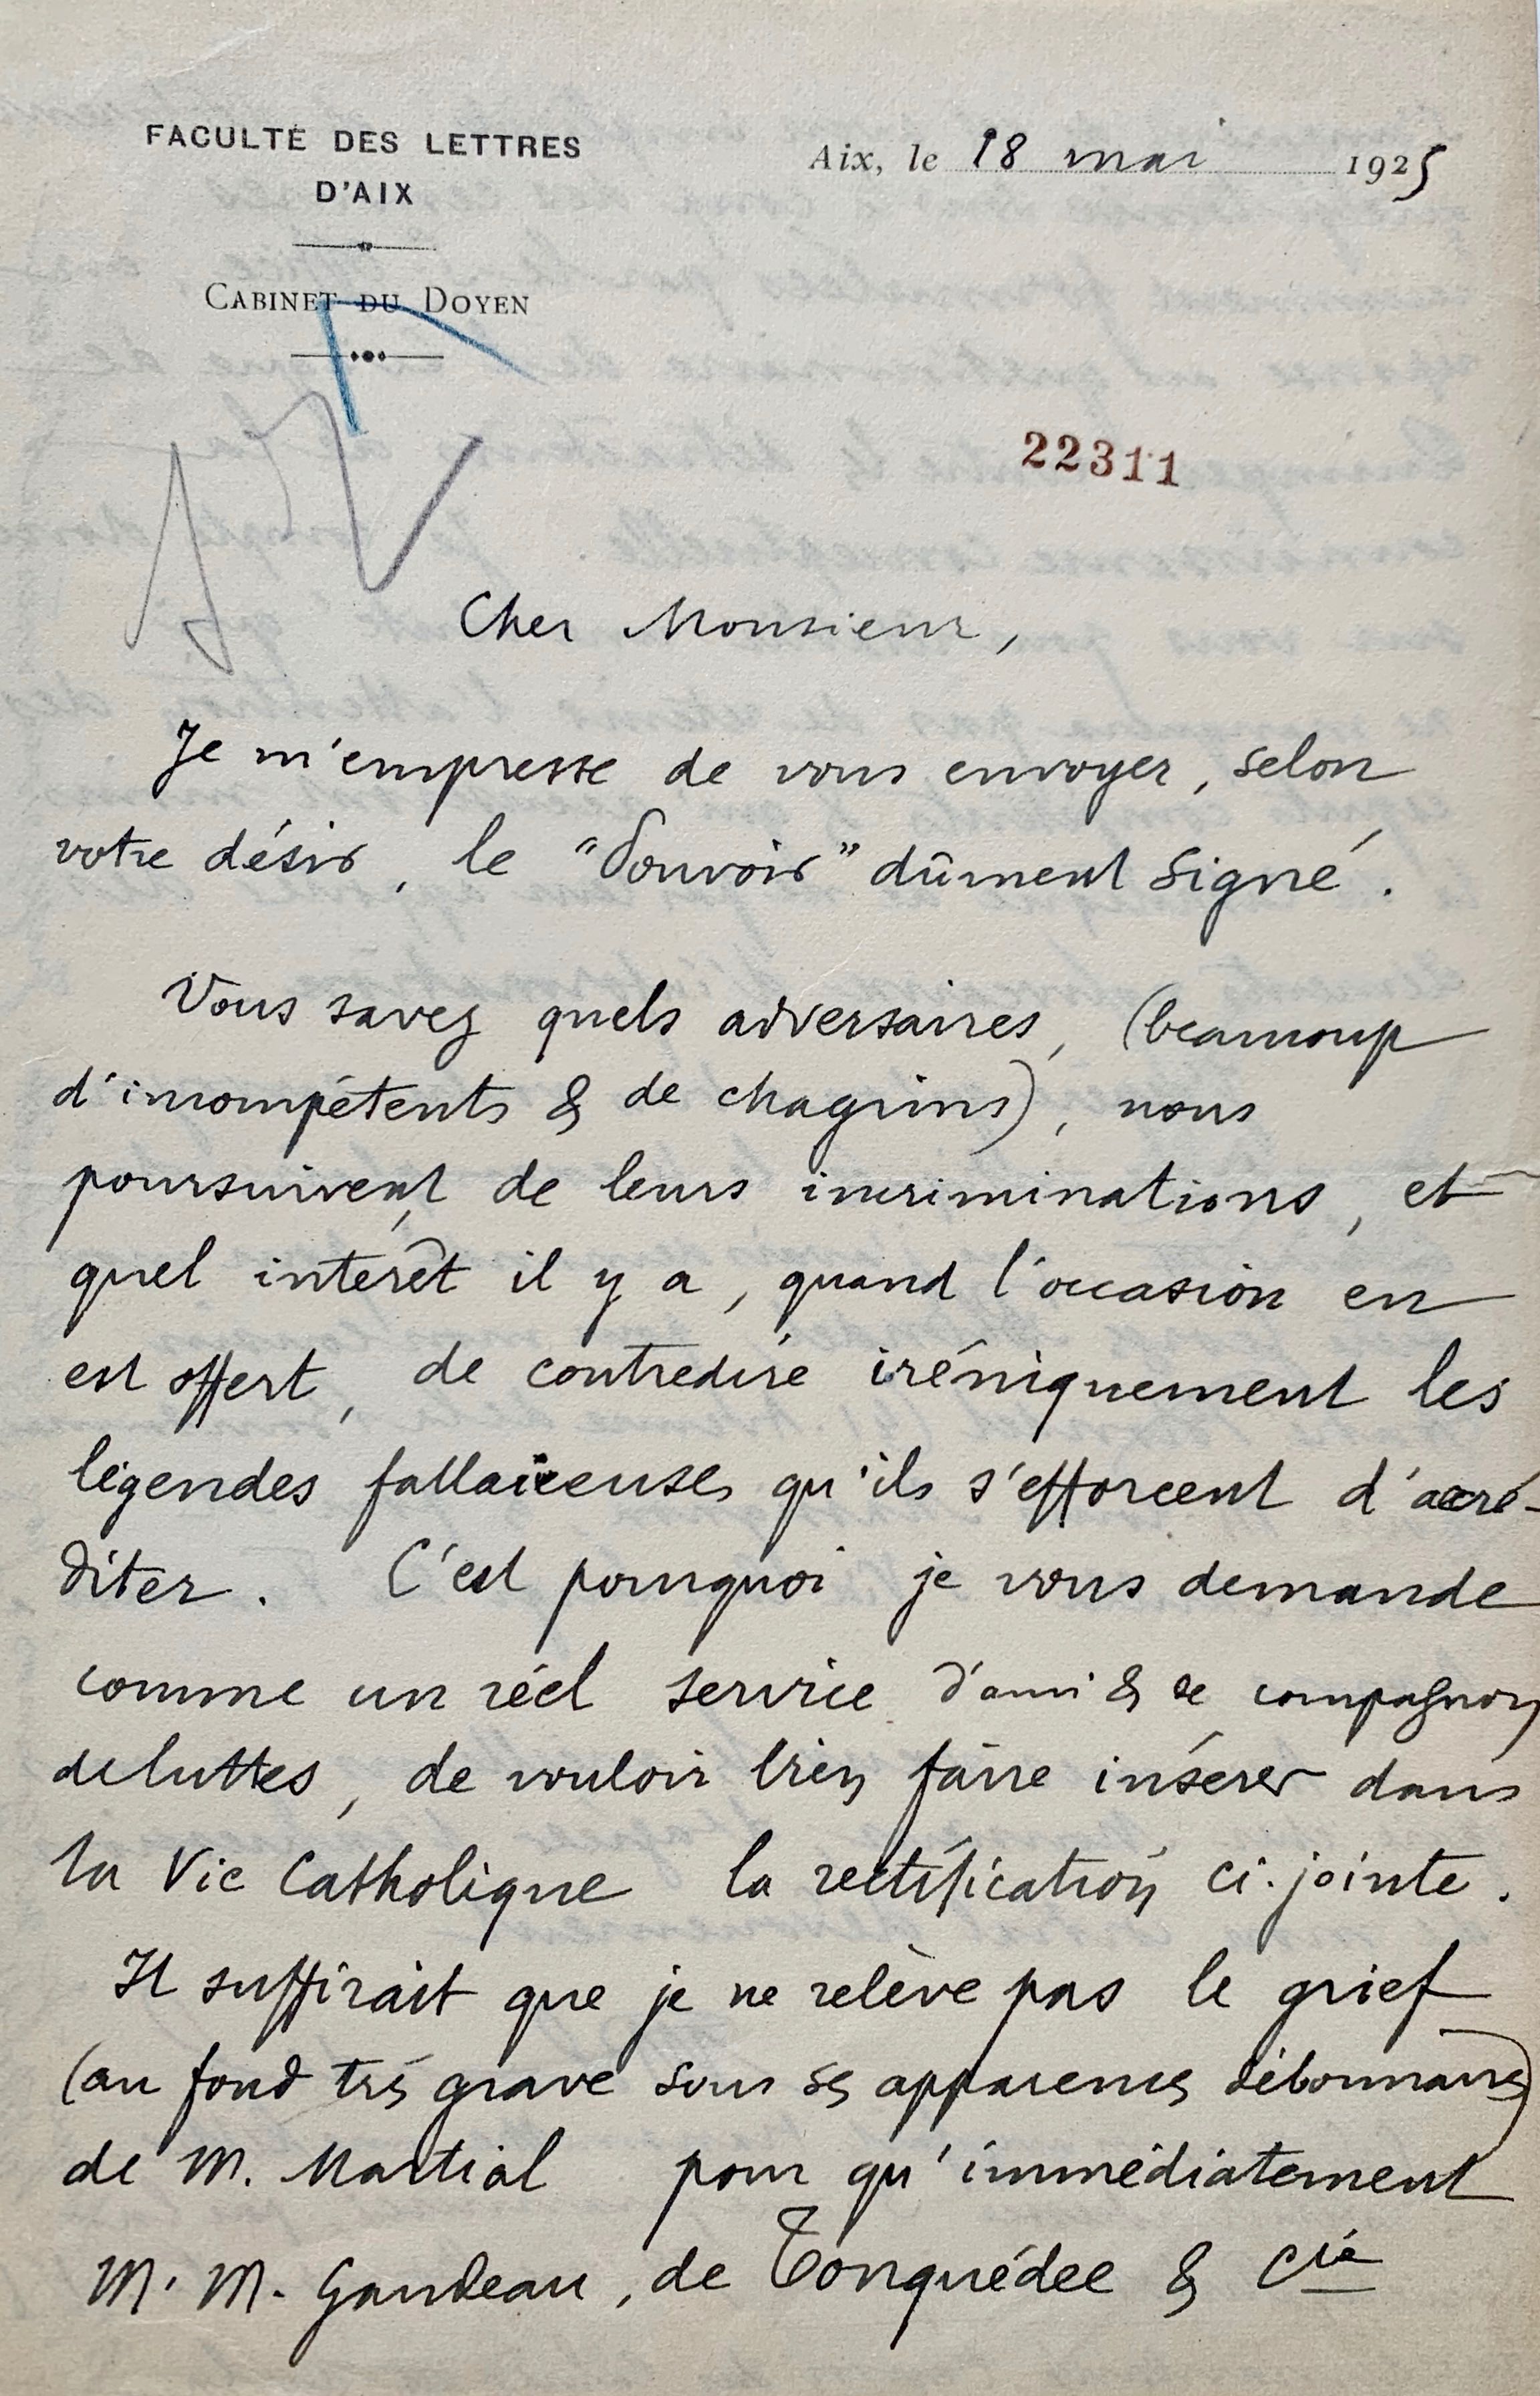 FACULTÉ DES LETTRES
D'AIX
CABINET DU DOYEN
Aix, le 18 mai 1925
22311
Cher Monsieur,
Je m'empresse de vous envoyer, selon
votre désir, le "Pouvoir" dûment signé.
Vous savez quels adversaires, (beaucoup
d'incompétents & de chagrins), nous
poursuivent de leurs incriminations, et
quel intérêt il y a, quand l'occasion en
est offert, de contredire iréniquement les
légendes fallacieuses qu'ils s'efforcent d'accré-
diter. C'est pourquoi je vous demande
comme un réel service d'ami & de compagnon
de luttes, de vouloir bien faire insérer dans
la Vie Catholique la rectification ci-jointe.
Il suffirait que je ne relève pas le grief
(au fond très grave sous ses apparences débonnaires)
de M. Martial pour qu'immédiatement
M. M. Gaudeau, de Tonquédec & Cie